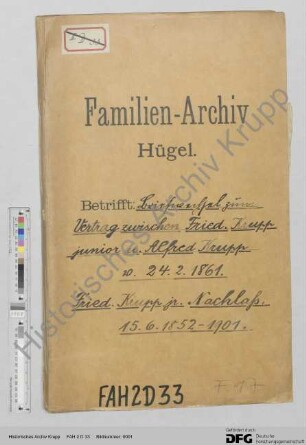 Familien-Archiv
Hügel.
Betrifft: Briefwechsel zum
Vertrag zwischen Fried. Krupp
junior u. Alfred Krupp
v. 24. 2. 1861.
Fried. Krupp jr. Nachlaß.
15.6.1852-1901.
FAH2D33
Historisches Archiv Krupp
Historisches Archiv Krupp FAH 2 D 33 Bildnummer 0001
Gefördert durch
DFG Deutsche
Forschungsgemeinschaft